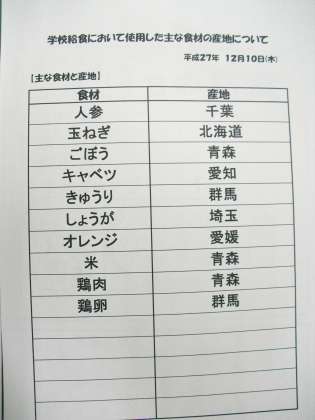 学校給食において使用した主な食材の産地について
平成27年 12月10日(木)
【主な食材と産地】
食材 産地
人参 千葉
玉ねぎ 北海道
ごぼう 青森
キャベツ 愛知
きゅうり 群馬
しょうが 埼玉
オレンジ 愛媛
米 青森
鶏肉 青森
鶏卵 群馬